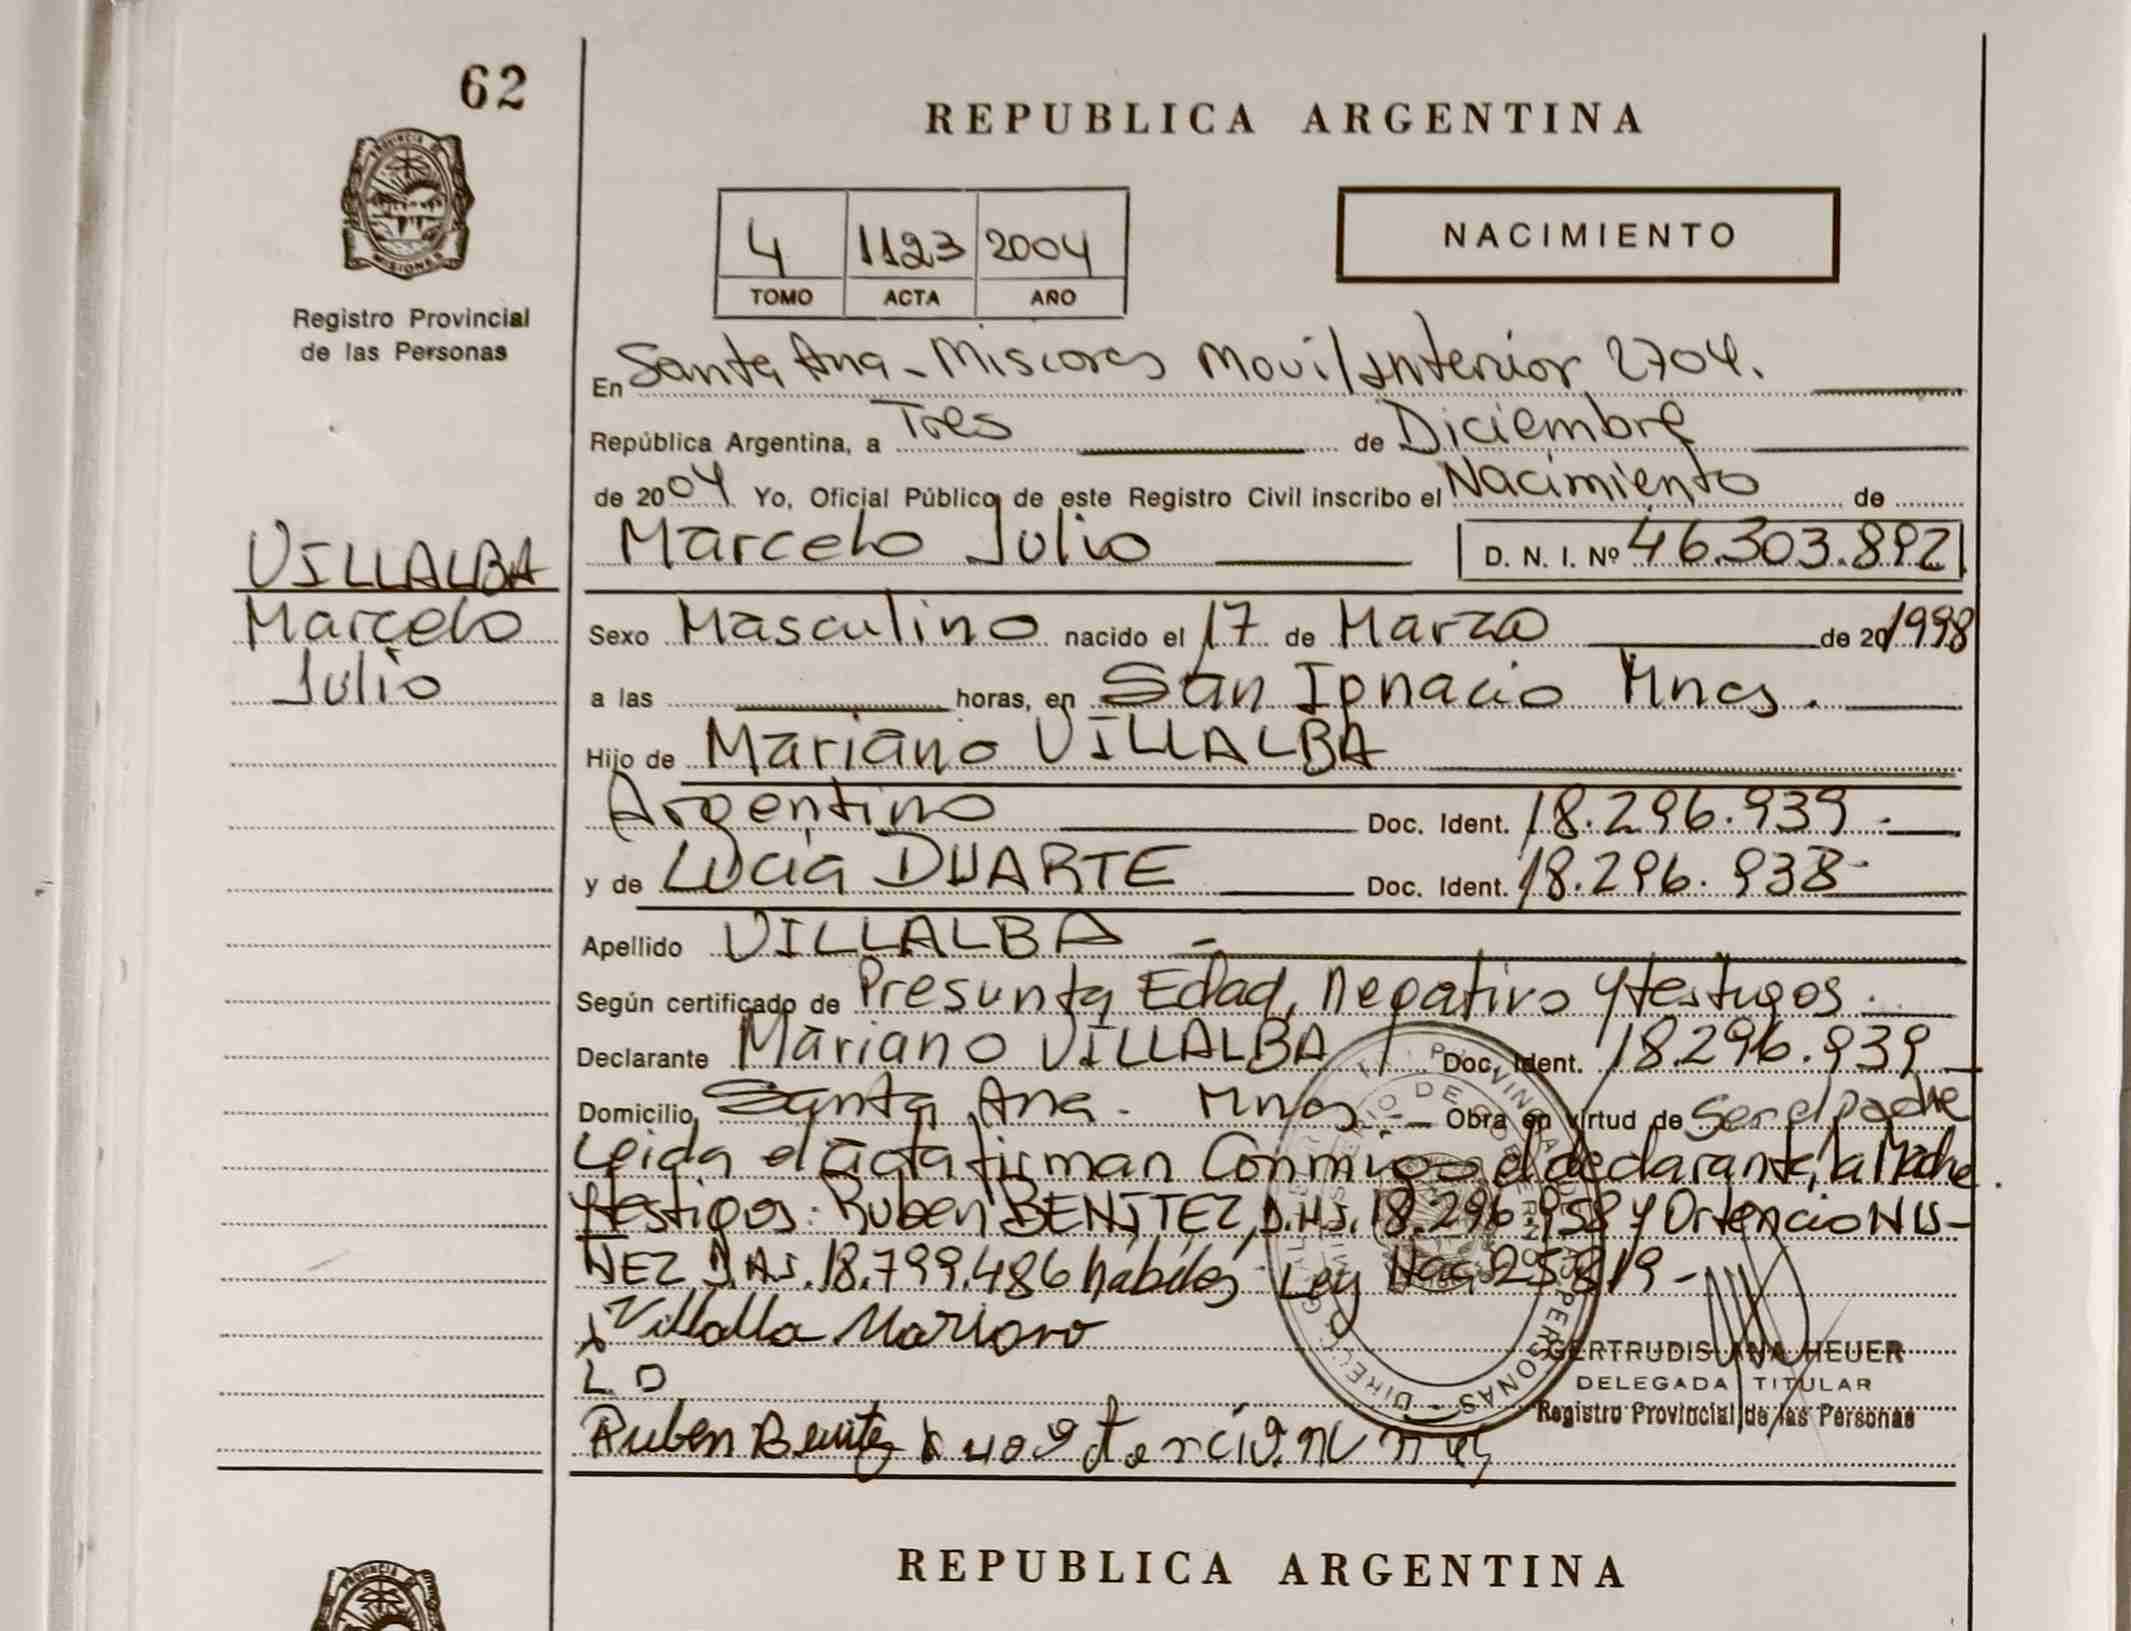 62
REPUBLICA ARGENTINA
PROVINCIA DE
MISIONES
Registro Provincial
de las Personas
4 1123 2004
TOMO ACTA AÑO
NACIMIENTO
En Santa Ana - Misiones Movil Interior 2704.
República Argentina, a Tres de Diciembre
de 2004 Yo, Oficial Público de este Registro Civil inscribo el Nacimiento de
Marcelo Julio D. N. I. Nº 46.303.892
VILLALBA
Marcelo
Julio
Sexo Masculino nacido el 17 de Marzo de 20 1998
a las horas, en San Ignacio Mnes.
Hijo de Mariano VILLALBA
Argentino Doc. Ident. 18.296.939.-
y de Lucia DUARTE Doc. Ident. 18.296.938-
Apellido VILLALBA -
Según certificado de Presunta Edad, Negativo y testigos.
Declarante Mariano VILLALBA Doc. Ident. 18.296.939
Domicilio Santa Ana - Mnes. - Obra en virtud de ser el padre
Leida el acta firman Conmigo el declarante, la Madre
y testigos: Ruben BENITEZ, D.N.I. 18.296.958 y Ortencio NU-
NEZ D.N.I. 18.799.486 hábiles - Ley Nac 25.819 -
Villalba Mariano
L D
GERTRUDIS ANA HEUER
DELEGADA TITULAR
Registro Provincial de las Personas
Ruben Benitez
REPUBLICA ARGENTINA